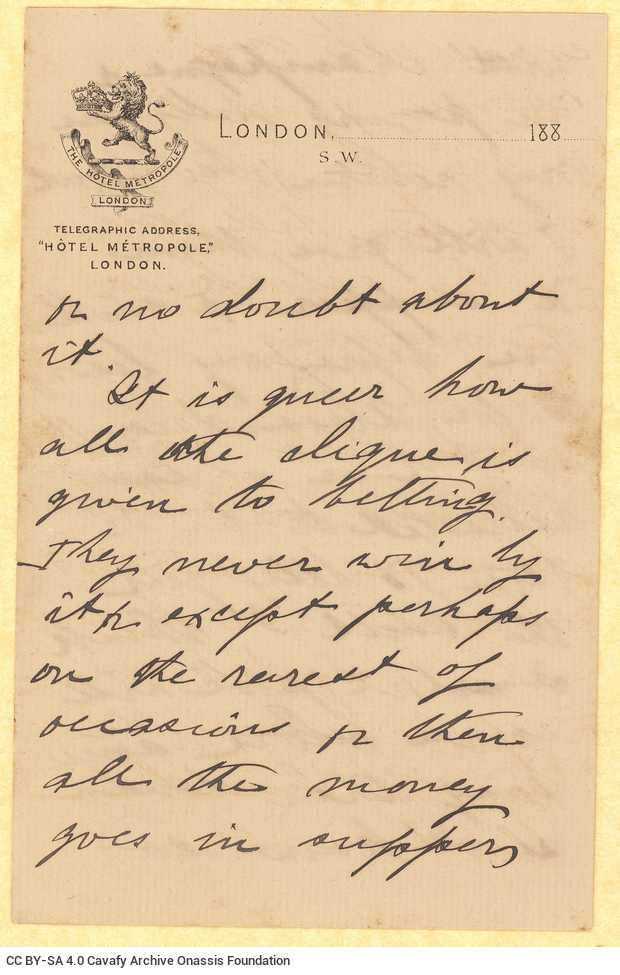 THE HÔTEL METROPOLE
LONDON
LONDON, 188
S.W.
TELEGRAPHIC ADDRESS,
"HÔTEL MÉTROPOLE,"
LONDON.
or no doubt about
it
It is queer how
all the clique is
given to betting.
They never win by
it & except perhaps
on the rarest of
occasions & then
all the money
goes in suppers
CC BY-SA 4.0 Cavafy Archive Onassis Foundation